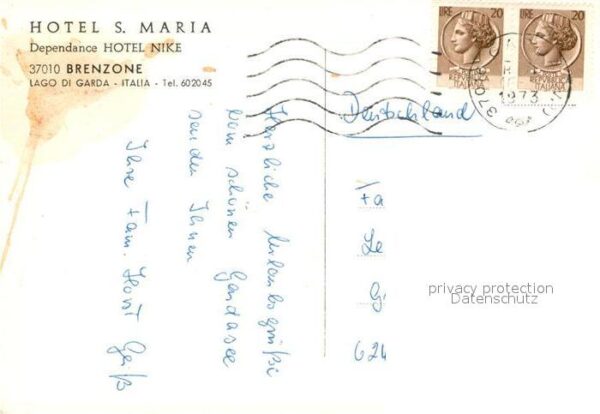 HOTEL S. MARIA
Dependance HOTEL NIKE
37010 BRENZONE
LAGO DI GARDA - ITALIA - Tel. 602045
LIRE 20
20
1973
Deutschland
Herzliche Urlaubsgrüße
vom schönen Gardasee
senden Ihnen
Ihre Fam. Horst Geiß
Fa
Le
G
624
privacy protection
Datenschutz